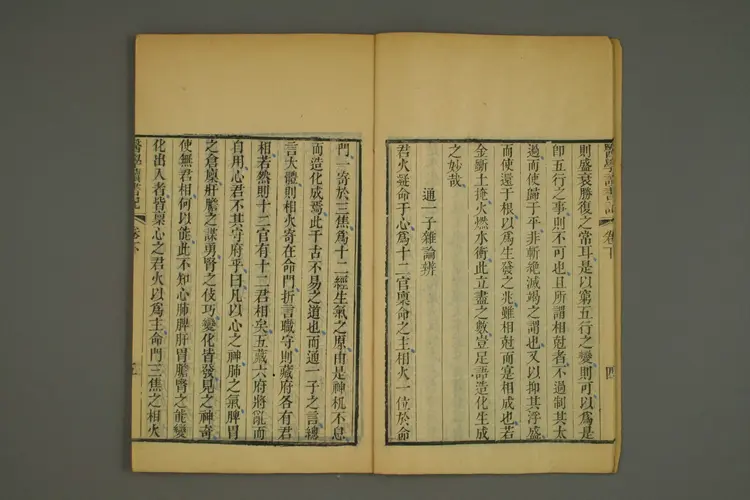 醫學讀書記 卷下 四
則盛衰勝復之常耳是以窮五行之變則可以爲是
卽五行之事則不可也且所謂相尅者不過制其太
過而使歸于平非斬絕滅竭之謂也又以抑其浮盛
而使還于根以爲生發之兆雖相尅而寔相成也若
金斲土掩火燃水衝此立盡之數豈足語造化生成
之妙哉
通一子雜論辨
君火誕命于心爲十二官稟命之主相火一位於命
門一寄於三焦爲十二經生氣之原由是神机不息
而造化成焉此千古不易之道也而通一子之言總
言大體則相火寄在命門折言職守則藏府各有君
相若然則十二官有十二君相矣五藏六府將亂而
自用心君不其守府乎曰凡以心之神肺之氣脾胃
之倉廩肝膽之謀勇腎之伎巧變化皆發見之神奇
使無君相何以能此不知心肺脾肝胃膽腎之能變
化出入者皆稟心之君火以爲主命門三焦之相火
醫學讀書記 卷下